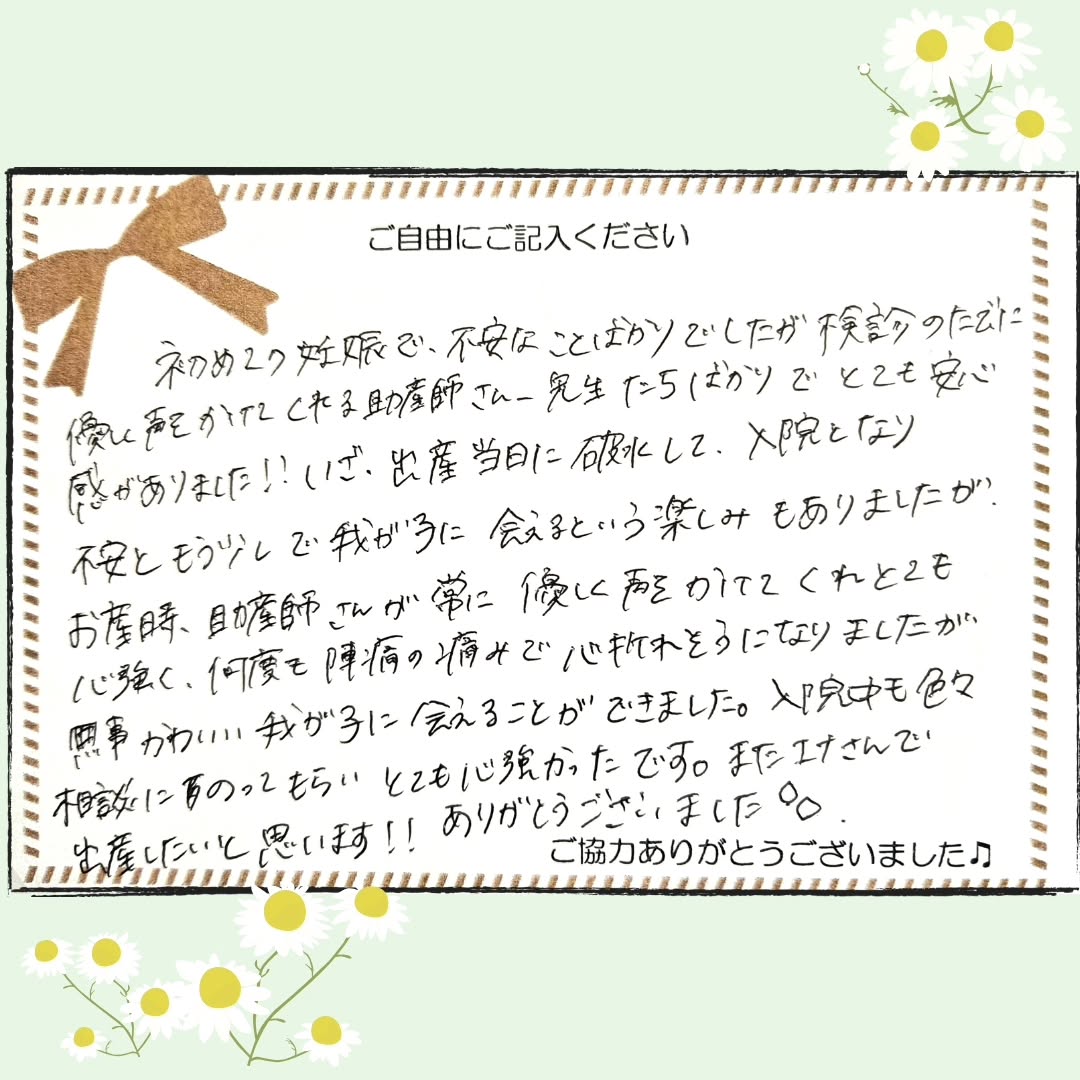 ご自由にご記入ください
初めての妊娠で、不安なことばかりでしたが検診のたびに
優しく声をかけてくれる助産師さん、先生たちばかりでとても安心
感がありました!!いざ、出産当日に破水して、入院となり
不安ともう少しで我が子に会えるという楽しみもありましたが、
お産時、助産師さんが常に優しく声をかけてくれとても
心強く、何度も陣痛の痛みで心折れそうになりましたが
無事かわいい我が子に会えることができました。入院中も色々
相談にものってもらいとても心強かったです。またエナさんで
出産したいと思います!!ありがとうございました
ご協力ありがとうございました♫